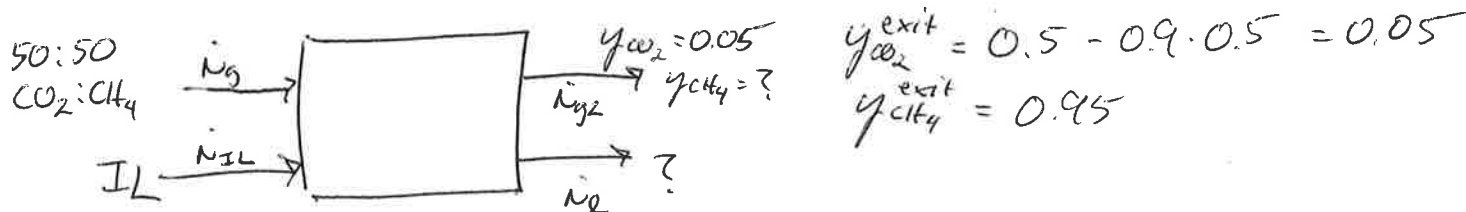 50:50
CO₂:CH₄
ṅg
ṅIL
IL
y_CO₂ = 0.05
y_CH₄ = ?
ṅg2
?
ṅl
y_CO₂^exit = 0.5 - 0.9 · 0.5 = 0.05
y_CH₄^exit = 0.95